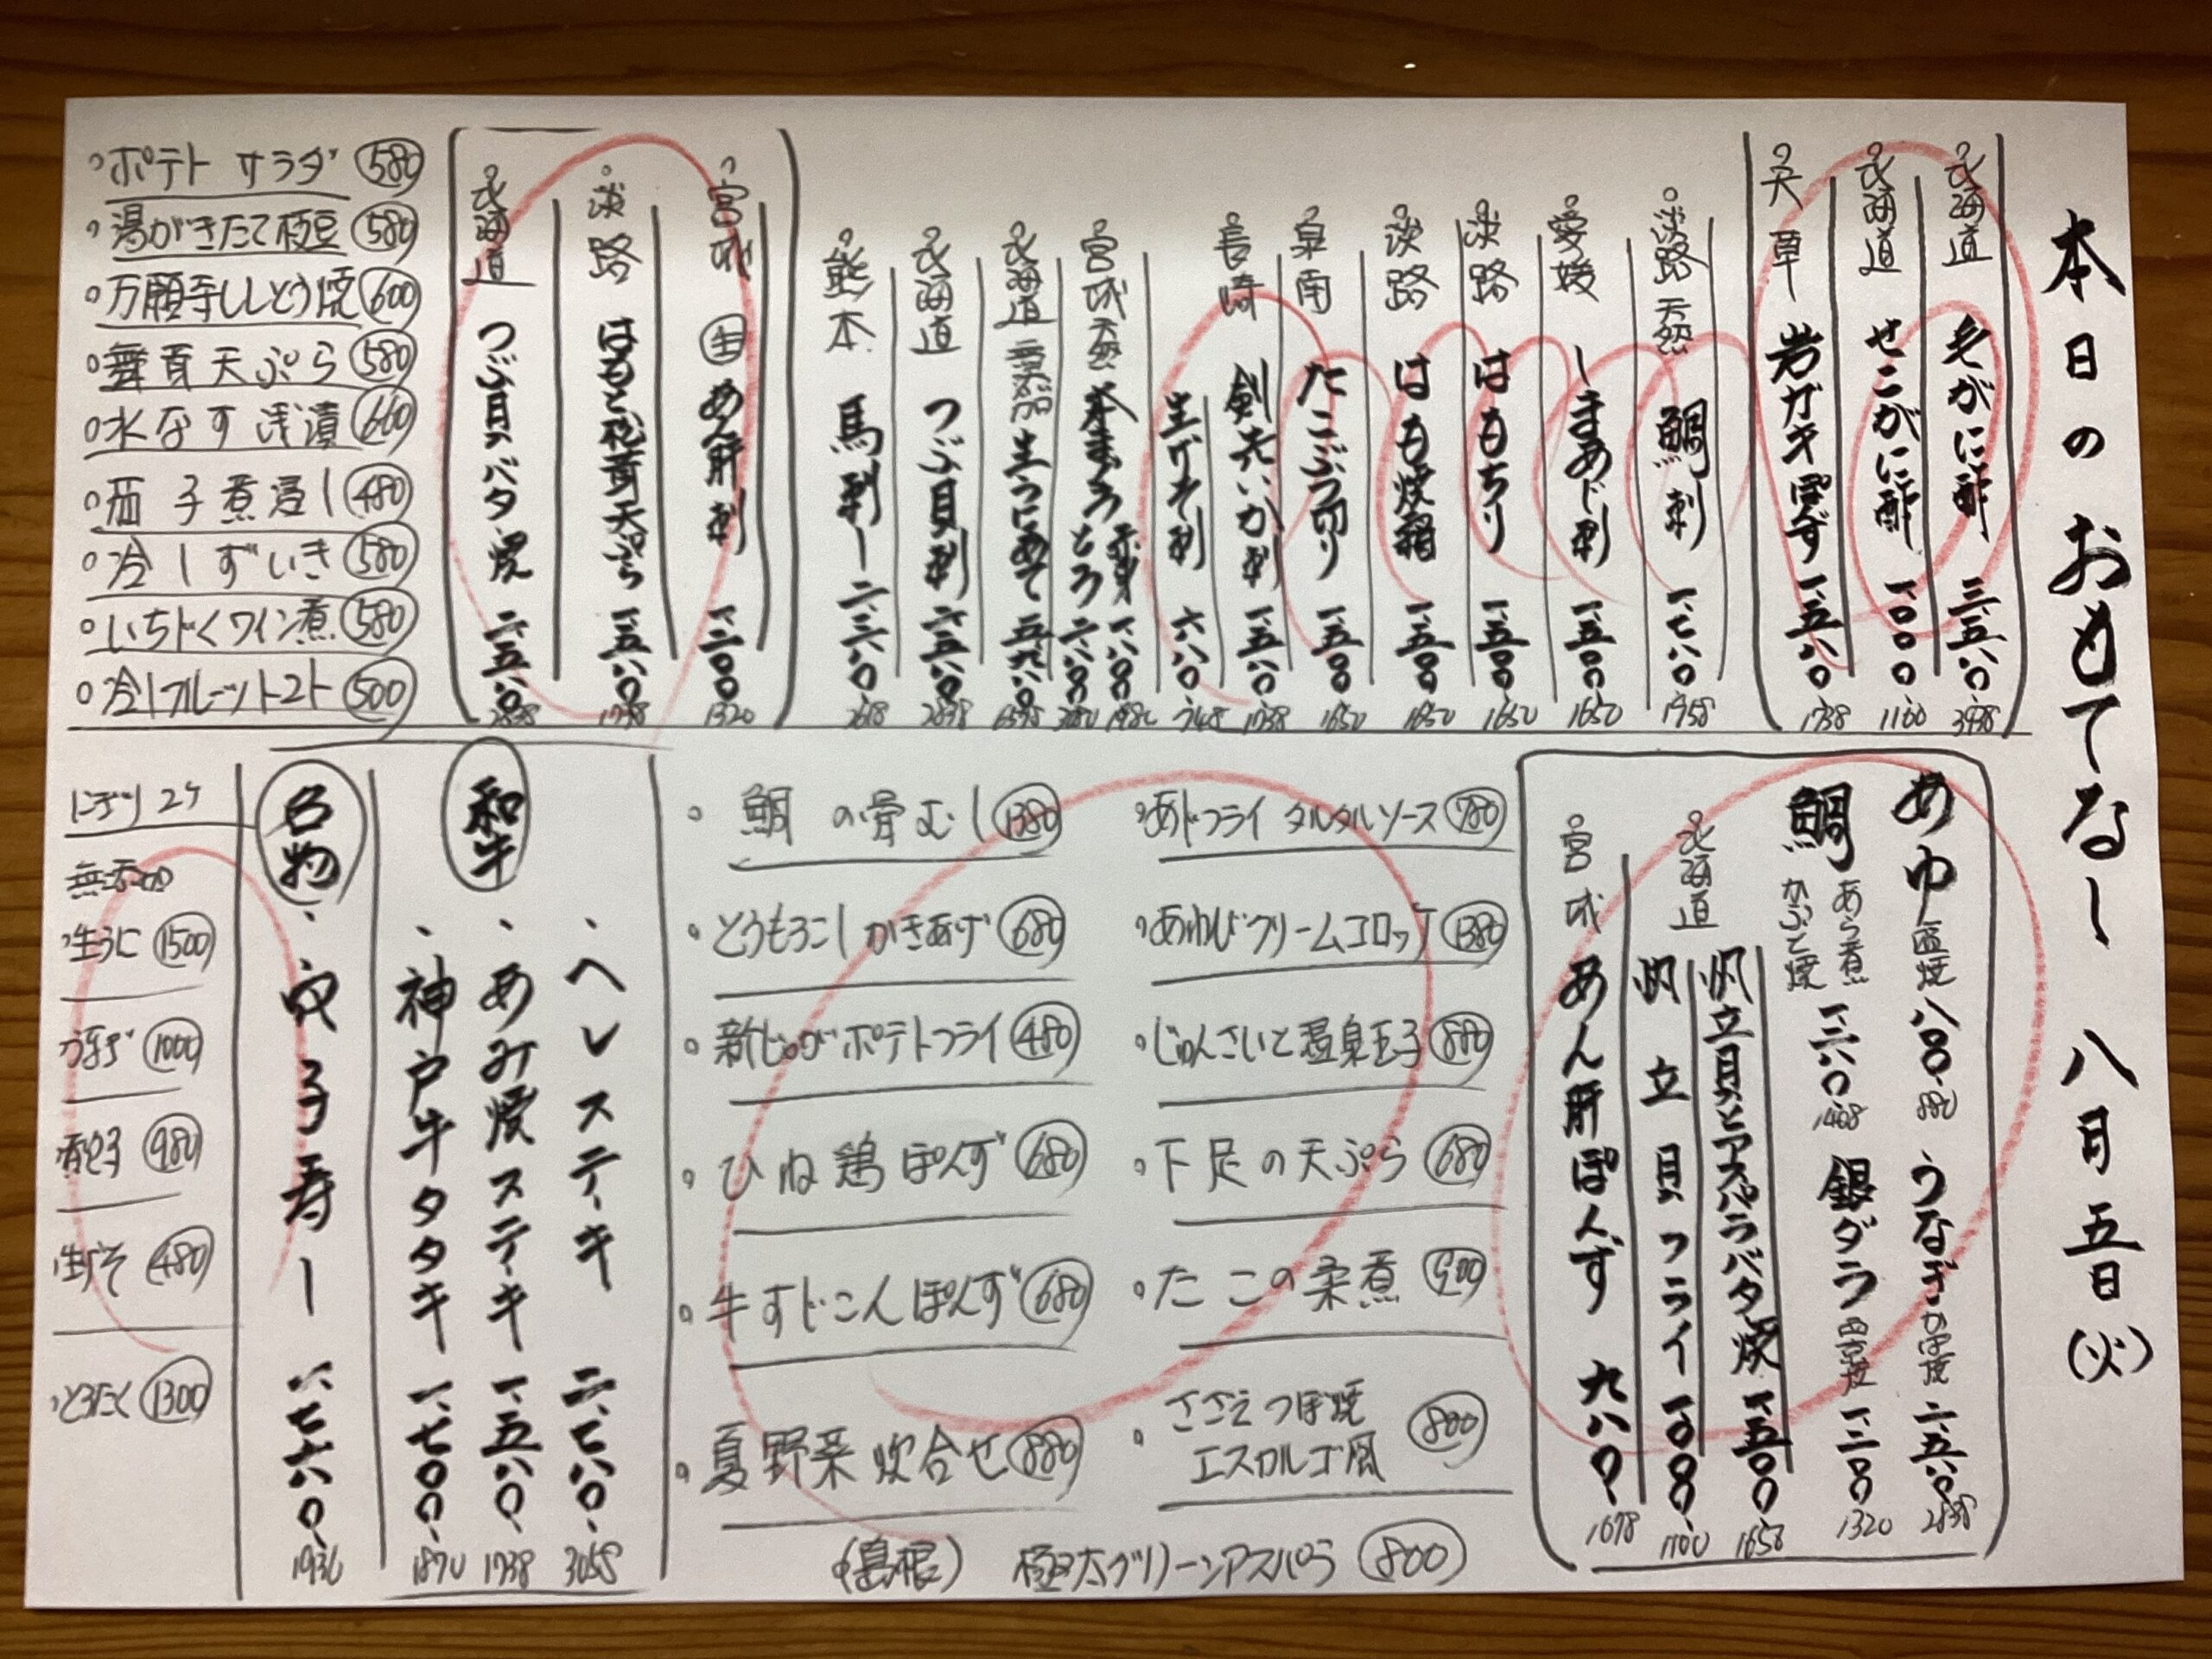 本日のおもてなし 八月五日(火)
北海道 毛がに酢 三、五八〇
北海道 せこがに酢 一、〇〇〇 1100
天草 岩ガキぽず 一、五八〇 1738
淡路 天然 鯛刺 一、七八〇 1958
愛媛 しまあじ刺 一、五〇〇 1650
淡路 はもちり 一、五〇〇 1650
淡路 はも焼霜 一、五〇〇 1650
泉南 たこぶつ切り 一、五〇〇 1650
長崎 剣先いか刺 一、五八〇 1738
生げそ刺 六八〇 748
宮城 天然 本まぐろ 赤身 一、八〇〇 1980
とろ 二、八〇〇 3080
北海道 生うにあて
北海道 つぶ貝刺 二、五八〇 2838
熊本 馬刺し 二、三八〇 2618
宮城 生 あん肝刺 一、二〇〇 1320
淡路 はもと松茸天ぷら 一、五八〇 1738
北海道 つぶ貝バタ焼 二、五八〇 2838
ポテトサラダ 580
湯がきたて枝豆 580
万願寺ししとう焼 600
舞茸天ぷら 580
水なす浅漬
茄子煮浸し 480
冷しずいき 580
いちじくワイン煮 580
冷しフルーツトマト 500
あゆ 塩焼 八〇〇 880
うなぎ かば焼 二、五八〇 2838
鯛 あら煮 かぶと焼 一、二八〇 1408
銀ダラ 西京焼 一、二〇〇 1320
北海道 帆立貝とアスパラバタ焼 一、五〇〇 1658
帆立貝フライ 一、〇〇〇 1100
宮城 あん肝ぽんず 九八〇 1078
あじフライ タルタルソース 780
あわびクリームコロッケ 1380
じゅんさいと温泉玉子 880
下足の天ぷら 680
たこの柔煮 500
さざえつぼ焼
エスカルゴ風 800
鯛の骨むし 1380
とうもろこしかきあげ 680
新じゃがポテトフライ 480
ひね鶏ぽんず 680
牛すじこんぽんず 680
夏野菜炊合せ 880
(島根) 極太グリーンアスパラ 800
和牛
、ヘレステーキ 二、七八〇 3058
、あみ焼ステーキ 一、五八〇 1738
、神戸牛タタキ 一、七〇〇 1870
名物
、穴子寿し 一、七六〇 1936
にぎり2ケ
無添加
生うに 1500
うなぎ 1000
穴子 980
生げそ 480
とろたく 1300